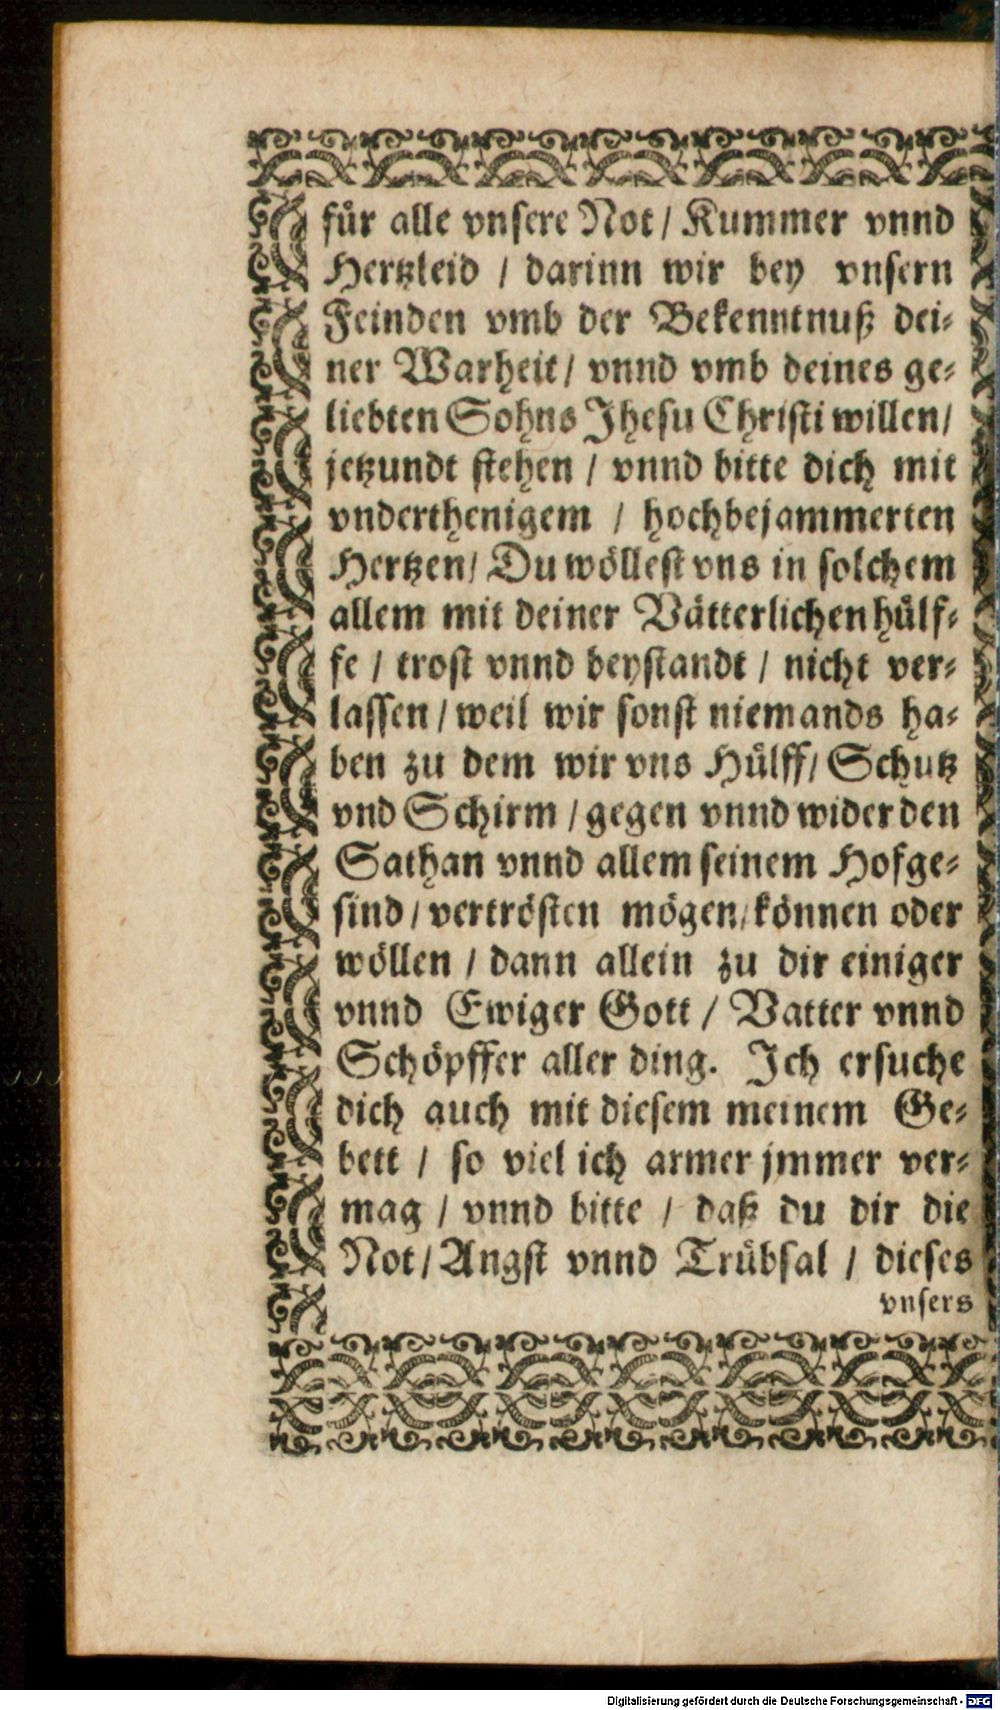 für alle vnsere Not / Kummer vnnd
Hertzleid / darinn wir bey vnsern
Feinden vmb der Bekenntnuß dei-
ner Warheit / vnnd vmb deines ge-
liebten Sohns Jhesu Christi willen /
jetzundt stehen / vnnd bitte dich mit
vnderthenigem / hochbejammerten
Hertzen / Du wöllest vns in solchem
allem mit deiner Vätterlichen hülf-
fe / trost vnnd beystandt / nicht ver-
lassen / weil wir sonst niemands ha-
ben zu dem wir vns Hülff / Schutz
vnd Schirm / gegen vnnd wider den
Sathan vnnd allem seinem Hofge-
sind / vertrösten mögen / können oder
wöllen / dann allein zu dir einiger
vnnd Ewiger Gott / Vatter vnnd
Schöpffer aller ding. Ich ersuche
dich auch mit diesem meinem Ge-
bett / so viel ich armer jmmer ver-
mag / vnnd bitte / daß du dir die
Not / Angst vnnd Trübsal / dieses
vnsers
Digitalisierung gefördert durch die Deutsche Forschungsgemeinschaft - DFG